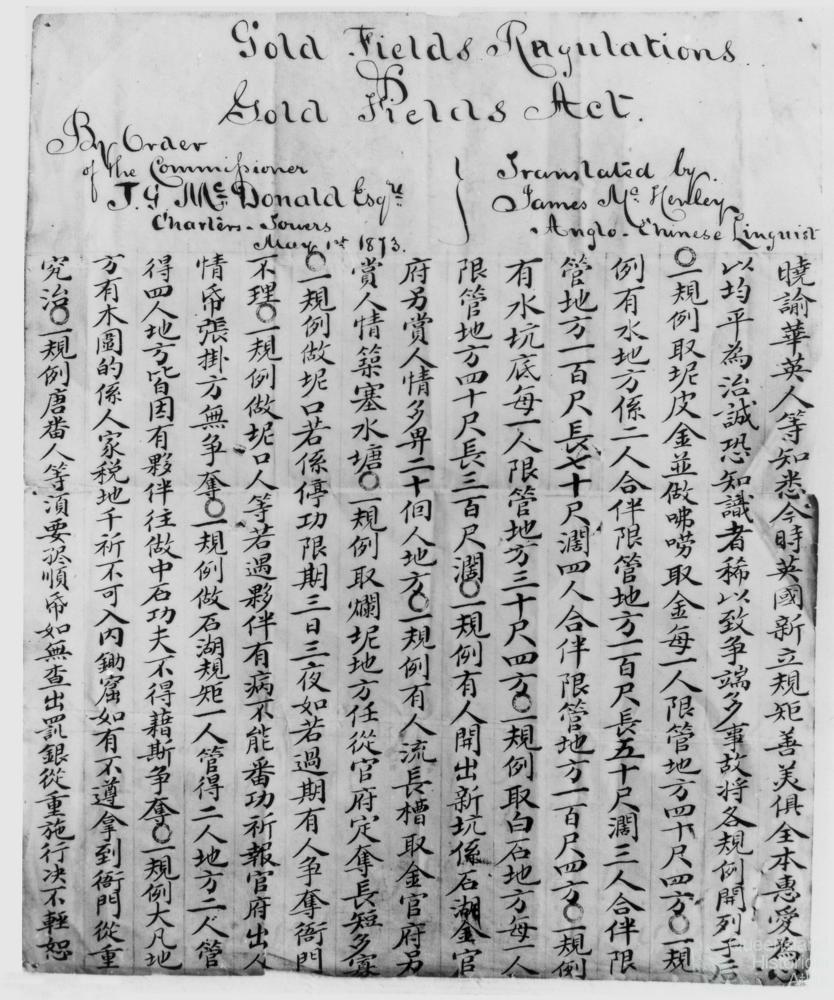 Gold Fields Regulations
&
Gold Fields Act.
By Order
of the Commissioner
J. G. McDonald Esqre
Charters-Towers
May 1st 1873.
Translated by.
James Mc Henley
Anglo-Chinese Linguist
曉諭華英人等知悉今時英國新立規矩善美俱全本惠愛
以均平為治誠恐知識者稀以致争端多事故將各規例開列于后
〇一規例取坭皮金並做咈唠取金每一人限管地方四十尺四方〇一規
例有水地方係二人合伴限管地方一百尺長五十尺濶三人合伴限
管地方一百尺長七十尺濶四人合伴限管地方一百尺四方〇一規例
有水坑底每一人限管地方三十尺四方〇一規例取白石地方每一人
限管地方四十尺長三百尺濶〇一規例有人開出新坑係石湖金官
府另賞人情多畀二十個人地方〇一規例有人流長槽取金官府另
賞人情築塞水塘〇一規例取爛坭地方任從官府定奪長短多寡
〇一規例做坭口若係停功限期三日三夜如若過期有人争奪衙門
不理〇一規例做坭口人等若遇夥伴有病不能番功祈報官府出人
情帋張掛方無争奪〇一規例做石湖規矩一人管得二人地方二人管
得四人地方皆因有夥伴往做中石功夫不得藉斯争奪〇一規例大凡地
方有木圍的係人家税地千祈不可入内鋤窟如有不遵拿到衙門從重
究治〇一規例唐畨人等須要孖順帋如無查出罰銀從重施行决不輕恕
Queensland
Historical
Atlas